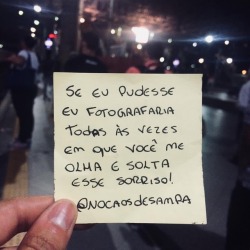 SE EU PUDESSE
EU FOTOGRAFARIA
TODAS ÀS VEZES
EM QUE VOCÊ ME
OLHA E SOLTA
ESSE SORRISO!
@NOCAOSDESAMPA